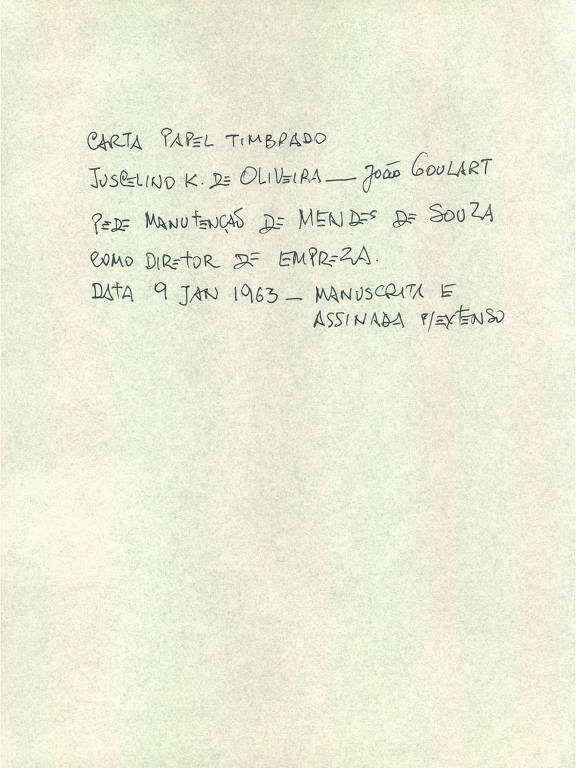 CARTA PAPEL TIMBRADO
JUSCELINO K. DE OLIVEIRA — João GOULART
PEDE MANUTENÇÃO DE MENDES DE SOUZA
COMO DIRETOR DE EMPREZA.
DATA 9 JAN 1963 — MANUSCRITA E
ASSINADA P/EXTENSO